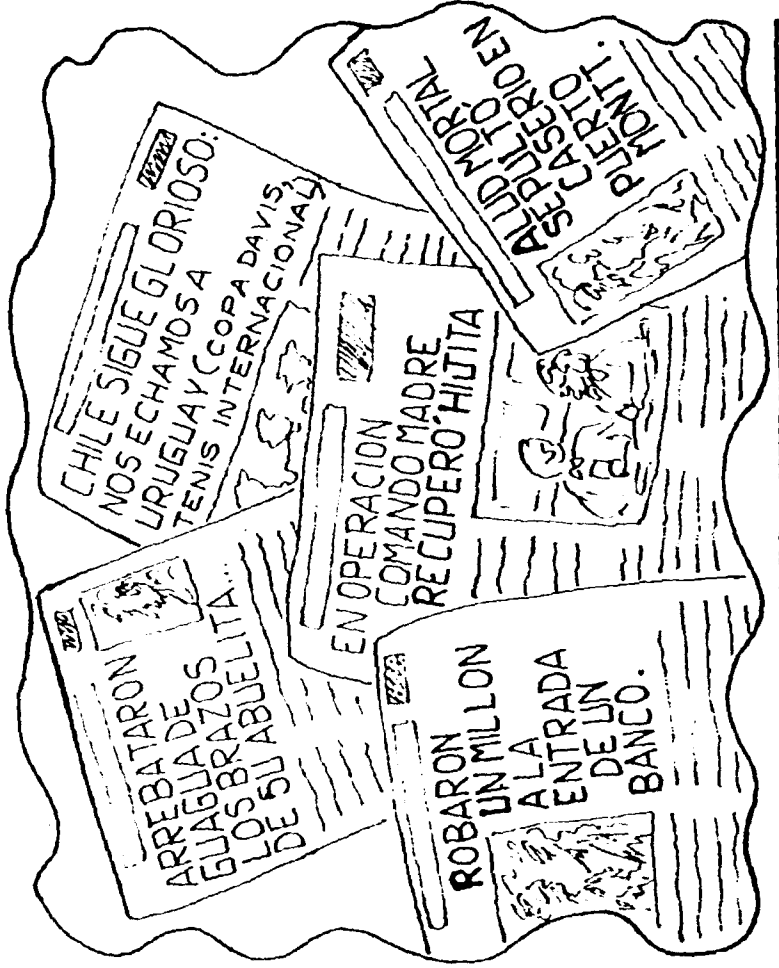 ARREBATARON
GUAGUA DE
LOS BRAZOS
DE SU ABUELITA...
CHILE SIGUE GLORIOSO:
NOS ECHAMOS A
URUGUAY (COPA DAVIS,
TENIS INTERNACIONAL)
EN OPERACION
COMANDO MADRE
RECUPERÓ HIJITA
ROBARON
UN MILLON
A LA
ENTRADA
DE UN
BANCO.
ALUD MORTAL
SEPULTÓ
CASERIO EN
PUERTO
MONTT.